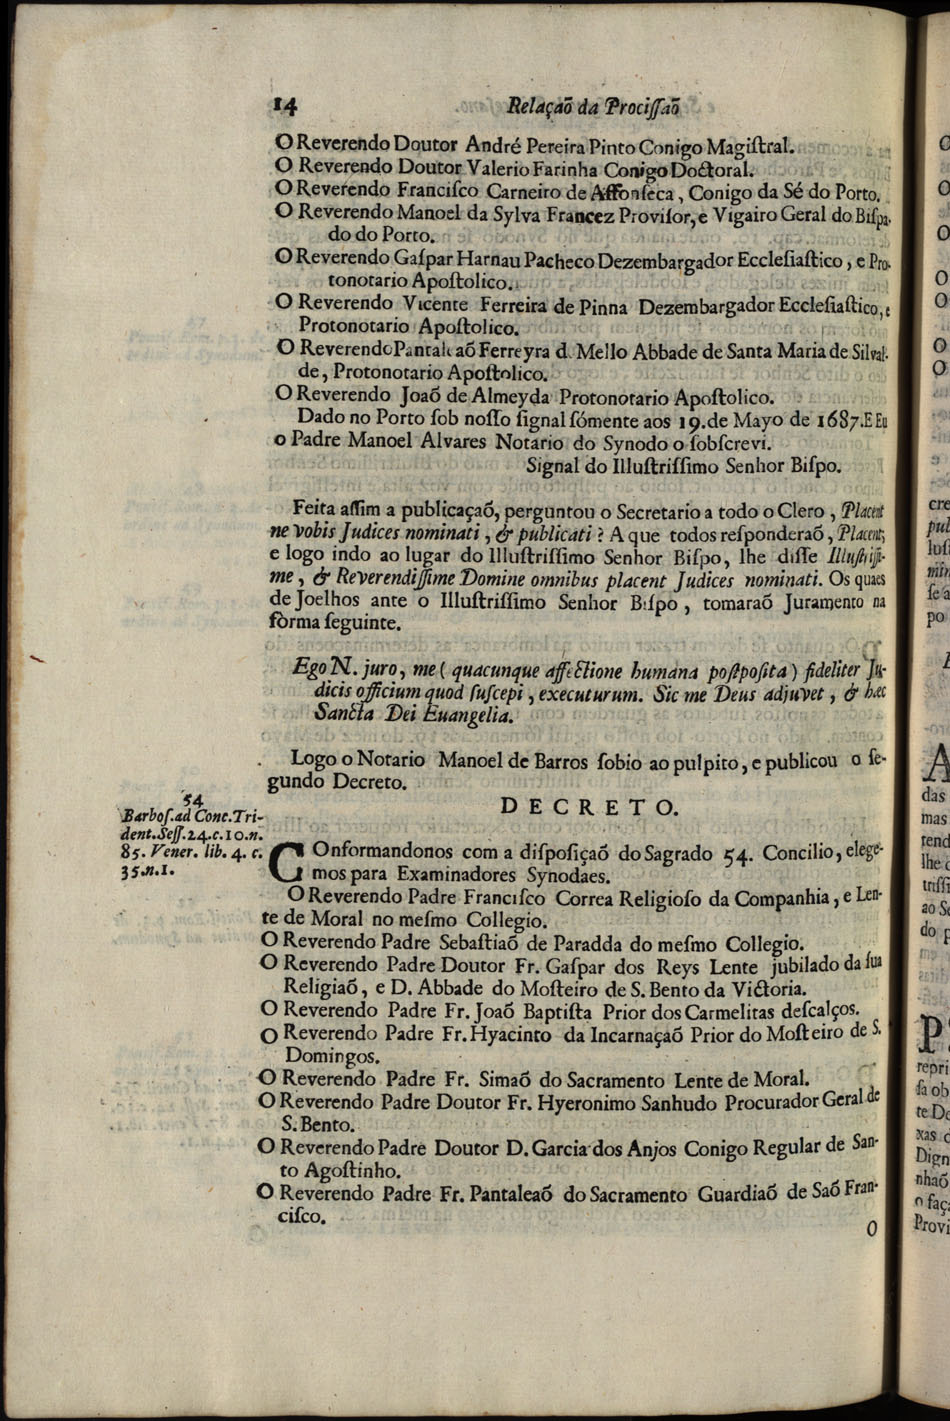 14 Relaçaõ da Prociſſaõ
O Reverendo Doutor André Pereira Pinto Conigo Magiſtral.
O Reverendo Doutor Valerio Farinha Conigo Doctoral.
O Reverendo Franciſco Carneiro de Affonſeca, Conigo da Sé do Porto.
O Reverendo Manoel da Sylva Francez Proviſor, e Vigairo Geral do Biſpa-
do do Porto.
O Reverendo Gaſpar Harnau Pacheco Dezembargador Eccleſiaſtico, e Pro-
tonotario Apoſtolico.
O Reverendo Vicente Ferreira de Pinna Dezembargador Eccleſiaſtico, e
Protonotario Apoſtolico.
O Reverendo Pantaleaõ Ferreyra de Mello Abbade de Santa Maria de Silval-
de, Protonotario Apoſtolico.
O Reverendo Joaõ de Almeyda Protonotario Apoſtolico.
Dado no Porto ſob noſſo ſignal ſómente aos 19. de Mayo de 1687. E Eu
o Padre Manoel Alvares Notario do Synodo o ſobſcrevi.
Signal do Illuſtriſſimo Senhor Biſpo.
Feita aſſim a publicaçaõ, perguntou o Secretario a todo o Clero, Placent
ne vobis Judices nominati, & publicati? A que todos reſponderaõ, Placent;
e logo indo ao lugar do Illuſtriſſimo Senhor Biſpo, lhe diſſe Illuſtriſſi-
me, & Reverendiſſime Domine omnibus placent Judices nominati. Os quaes
de Joelhos ante o Illuſtriſſimo Senhor Biſpo, tomaraõ Juramento na
fòrma ſeguinte.
Ego N. juro, me ( quacunque affectione humana poſtpoſita ) fideliter Ju-
dicis officium quod ſuſcepi, executurum. Sic me Deus adjuvet, & hæc
Sancta Dei Euangelia.
Logo o Notario Manoel de Barros ſobio ao pulpito, e publicou o ſe-
gundo Decreto.
DECRETO.
54
Barboſ. ad Conc. Tri-
dent. Seſſ. 24. c. 10. n.
85. Vener. lib. 4. c.
35. n. 1.
COnformandonos com a diſpoſiçaõ do Sagrado 54. Concilio, elege-
mos para Examinadores Synodaes.
O Reverendo Padre Franciſco Correa Religioſo da Companhia, e Len-
te de Moral no meſmo Collegio.
O Reverendo Padre Sebaſtiaõ de Paradda do meſmo Collegio.
O Reverendo Padre Doutor Fr. Gaſpar dos Reys Lente jubilado da ſua
Religiaõ, e D. Abbade do Moſteiro de S. Bento da Victoria.
O Reverendo Padre Fr. Joaõ Baptiſta Prior dos Carmelitas deſcalços.
O Reverendo Padre Fr. Hyacinto da Incarnaçaõ Prior do Moſteiro de S.
Domingos.
O Reverendo Padre Fr. Simaõ do Sacramento Lente de Moral.
O Reverendo Padre Doutor Fr. Hyeronimo Sanhudo Procurador Geral de
S. Bento.
O Reverendo Padre Doutor D. Garcia dos Anjos Conigo Regular de San-
to Agoſtinho.
O Reverendo Padre Fr. Pantaleaõ do Sacramento Guardiaõ de Saõ Fran-
ciſco.
O